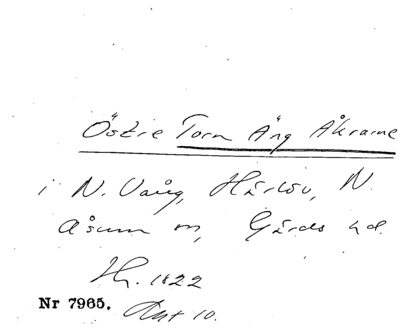 Östre Torn Äng Åkrarne
i N. Vång, Härlöv, N.
Åsum m, Gärds hd.
H. 1822
Nr 7965. Akt 10.